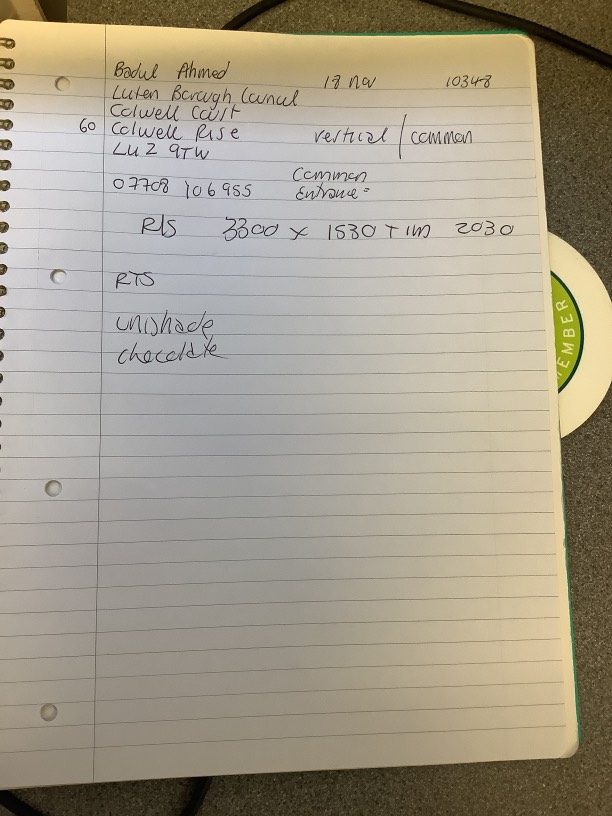 Badul Ahmed 18 Nov 10348
Luton Borough Council
Colwell Court
60 Colwell Rise vertical / common
LU2 9TW
Common
07708 106955 Entrance =
RIS 3300 x 1530 TIM 2030
RTS
unishade
chocolate
EMBER